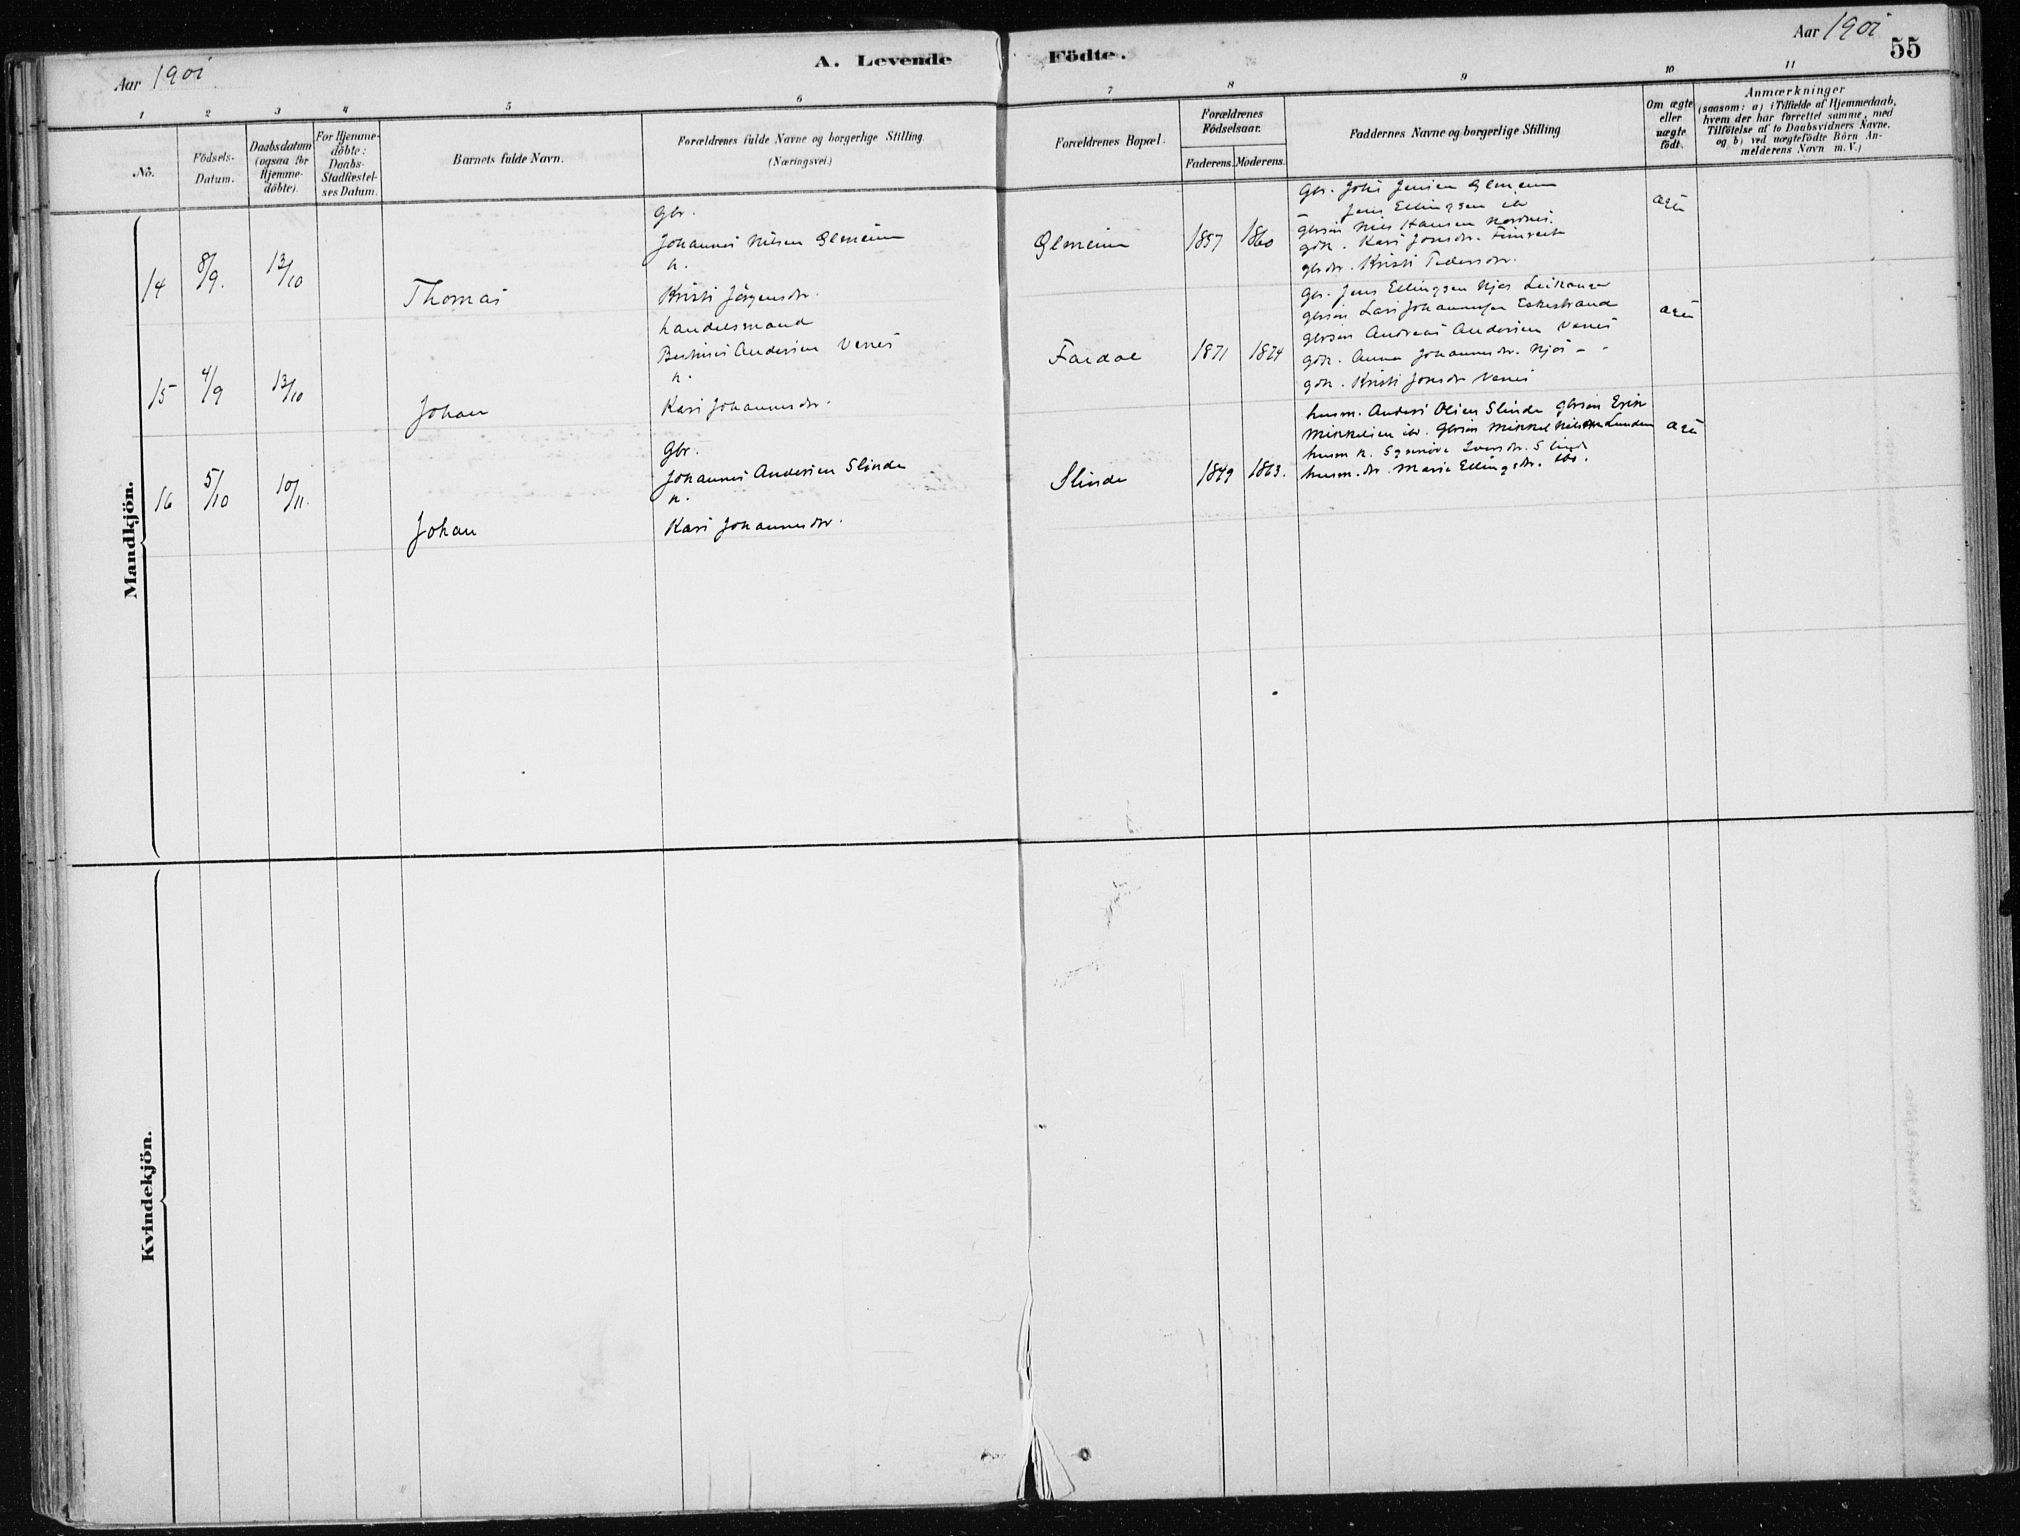 Aar 1901
A. Levende Födte.
Aar 1901
55
1 2 3 4 5 6 7 8 9 10 11
No.
Födsels-
Datum.
Daabsdatum
(ogsaa for
Hjemme-
döbte).
For Hjemme-
döbte:
Daabs-
Stadfæstel-
ses Datum.
Barnets fulde Navn.
Forældrenes fulde Navne og borgerlige Stilling
(Næringsvei.)
Forældrenes Bopæl.
Forældrenes
Födselsaar.
Faderens. Moderens.
Faddernes Navne og borgerlige Stilling
Om ægte
eller
uægte
födt.
Anmærkninger
(saasom: a) i Tilfælde af Hjemmedaab,
hvem der har forrettet samme, med
Tilföielse af to Daabsvidners Navne,
og b) ved uægtefödte Börn An-
melderens Navn m. V.)
Mandkjön.
14 8/9. 13/10 Thomas
Gbr.
Johannes Nilsen Olmeim
k.
Kristi Jörgensdr.
Olmeim 1857 1860
Gbr. Johs Jensen Olmeim
— Jens Ellingsen ib
gbrsön Nils Hansen Nordnes.
gdk. Kari Jonsdr. Fimreite
gbrdr. Kristi Pedersdr.
ægte
15 4/9 13/10 Johan
handelsmand
Andersen Venes
k.
Kari Johannesdr.
Fardal 1871 1874
Gbr. Jens Ellingsen Njös Leikanger
gbrsön Lars Johannesen Eskestrand
gbrsön Andreas Andersen Venes
gdk. Anna Johannesdr. Njös - -
gdk. Kristi Jonsdr Venes
ægte
16 5/10 10/11. Johan
Gbr.
Johannes Andersen Slinde
k.
Kari Johannesdr.
Slinde 1849 1863.
husm. Anders Olsen Slinde gbrsön Erik
Mikkelsen ib. Gbrsön Mikkel Nielsen Lunden
husm k. Synneva Iversdr. Slinde
husm. dr. Marie Ellingsdr. ibd.
ægte
Kvindekjön.